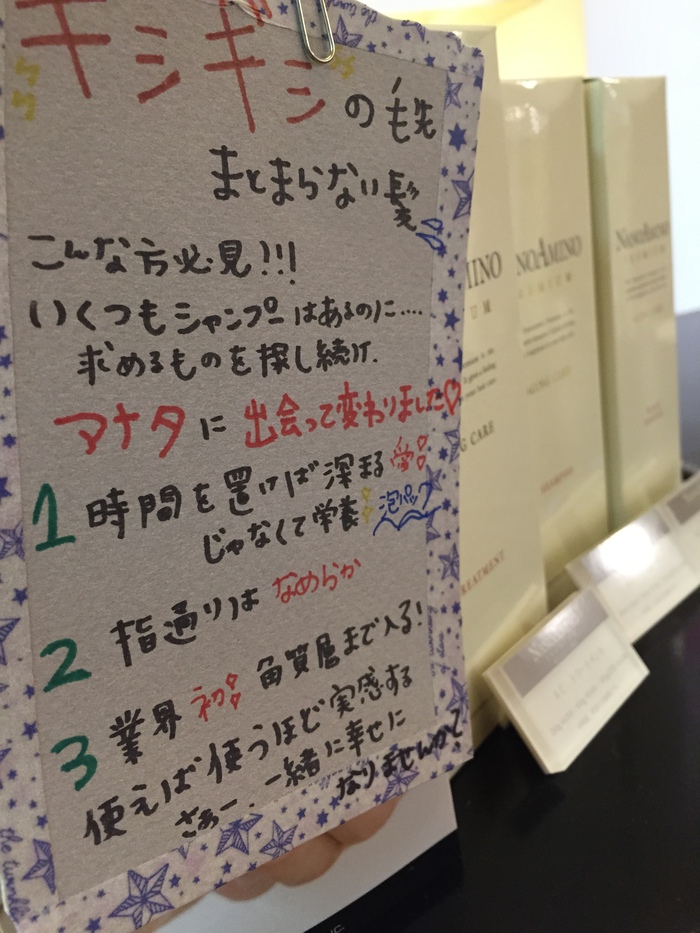 キシキシの毛先
まとまらない髪
こんな方必見!!!
いくつもシャンプーはあるのに....
求めるものを探し続け.
アナタに出会って変わりました♡
1 時間を置けば深まる愛
じゃなくて栄養 泡パック
2 指通りは なめらか
3 業界初 角質層まで入る!
使えば使うほど実感する
さぁー、一緒に幸せに
なりませんかて
the twinkle
MINO
UM
G CARE
REATMENT
NOAMINO
MIUM
NANOAMINO